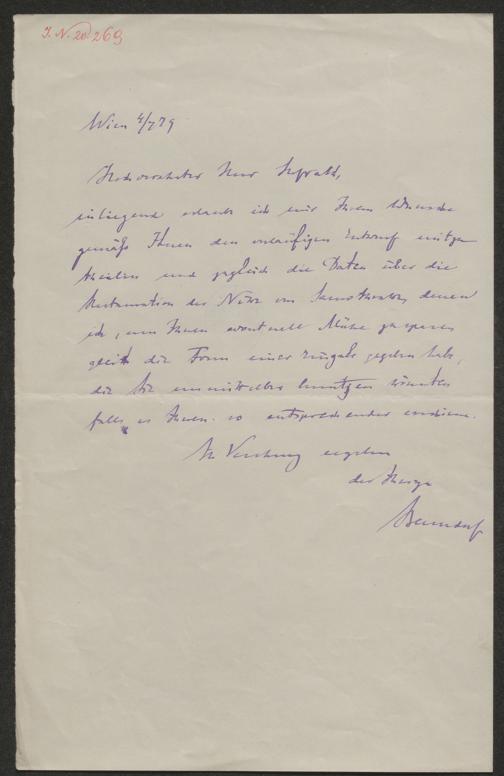 J. N. 20.269
Wien 4/7 79
Hochverehrter Herr Hofrath,
inliegend erlaube ich mir Ihrem Wunsche
gemäß Ihnen den vorläufigen Entwurf mitzu
theilen und zugleich die Daten über die
Restauration der Nike von Samothrake, denen
ich, um Ihnen eventuell Mühe zu sparen
gleich die Form einer Eingabe gegeben habe,
die Sie unmittelbar benutzen könnten
falls es Ihnen so entsprechender erschiene.
In Verehrung ergeben
der Ihrige
Benndorf